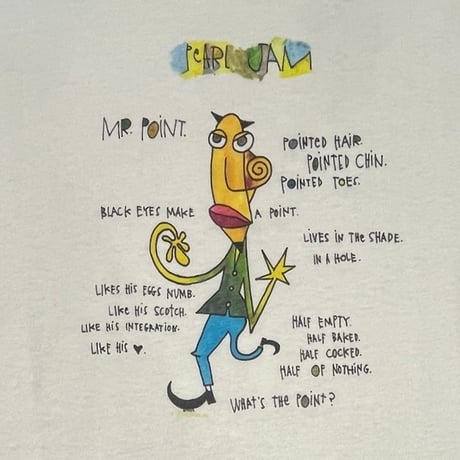 PEARL JAM
MR. POINT.
POINTED HAIR.
POINTED CHIN.
POINTED TOES.
BLACK EYES MAKE A POINT.
LIVES IN THE SHADE.
IN A HOLE.
LIKES HIS EGGS NUMB.
LIKE HIS SCOTCH.
LIKE HIS INTEGRATION.
LIKE HIS ♥.
HALF EMPTY.
HALF BAKED.
HALF COCKED.
HALF OF NOTHING.
WHAT'S THE POINT?